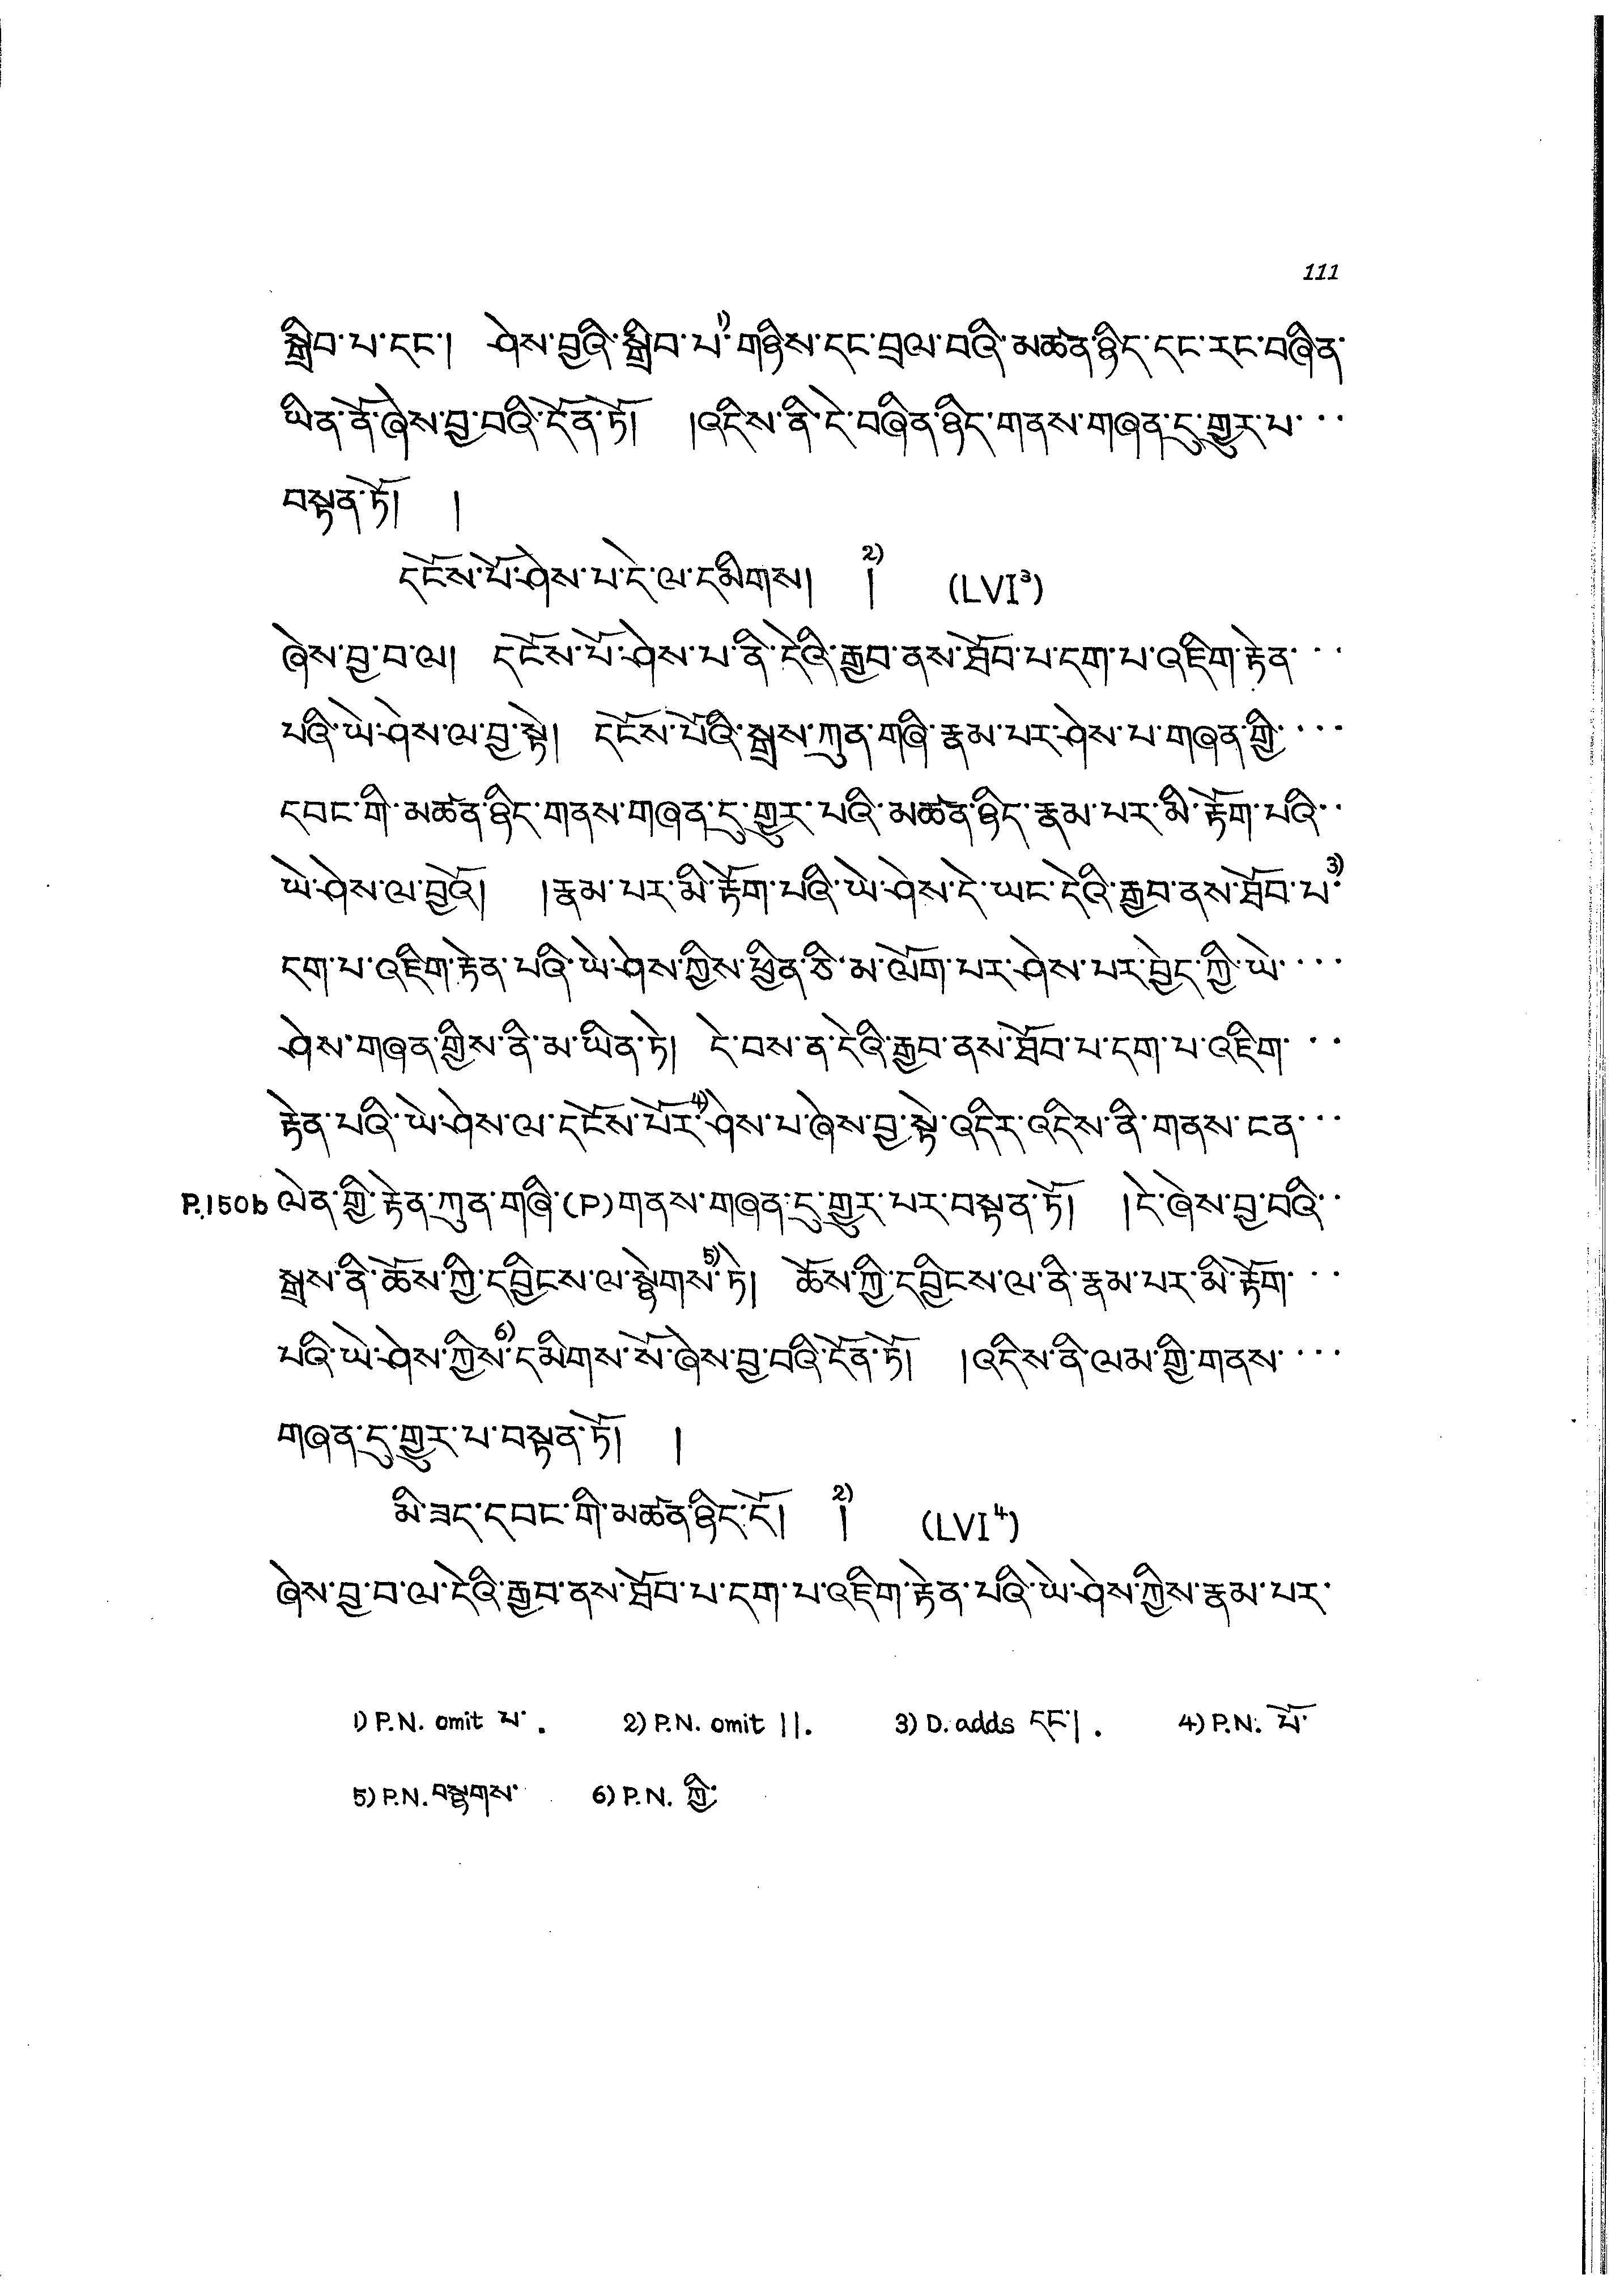 111
སྒྲིབ་པ་དང་།  ཤེས་བྱའི་སྒྲིབ་པ་¹⁾གཉིས་དང་བྲལ་བའི་མཚན་ཉིད་དང་རང་བཞིན་
ཡིན་ནོ་ཞེས་བྱ་བའི་དོན་ཏོ།  །འདིས་ནི་དེ་བཞིན་ཉིད་གནས་གཞན་དུ་གྱུར་པ་...
བསྟན་ཏོ།  །
དངོས་པོ་ཤེས་པ་དེ་ལ་དམིགས།  །²⁾  (LVI³)
ཞེས་བྱ་བ་ལ།  དངོས་པོ་ཤེས་པ་ནི་དེའི་རྒྱབ་ནས་ཐོབ་པ་དག་པ་འཇིག་རྟེན་...
པའི་ཡེ་ཤེས་ལ་བྱ་སྟེ།  དངོས་པོའི་སྒྲས་ཀུན་གཞི་རྣམ་པར་ཤེས་པ་གཞན་གྱི་....
དབང་གི་མཚན་ཉིད་གནས་གཞན་དུ་གྱུར་པའི་མཚན་ཉིད་རྣམ་པར་མི་རྟོག་པའི་..
ཡེ་ཤེས་ལ་བྱའོ།  །རྣམ་པར་མི་རྟོག་པའི་ཡེ་ཤེས་དེ་ཡང་དེའི་རྒྱབ་ནས་ཐོབ་པ་³⁾
དག་པ་འཇིག་རྟེན་པའི་ཡེ་ཤེས་ཀྱིས་ཕྱིན་ཅི་མ་ལོག་པར་ཤེས་པར་བྱེད་ཀྱི་ཡེ་....
ཤེས་གཞན་གྱིས་ནི་མ་ཡིན་ཏེ།  དེ་བས་ན་དེའི་རྒྱབ་ནས་ཐོབ་པ་དག་པ་འཇིག་...
རྟེན་པའི་ཡེ་ཤེས་ལ་དངོས་པོར་⁴⁾ཤེས་པ་ཞེས་བྱ་སྟེ་འདིར་འདིས་ནི་གནས་ངན་...
P.150b ལེན་གྱི་རྟེན་ཀུན་གཞི་(P)གནས་གཞན་དུ་གྱུར་པར་བསྟན་ཏོ།  །དེ་ཞེས་བྱ་བའི་..
སྒྲས་ནི་ཆོས་ཀྱི་དབྱིངས་ལ་སྙེགས་⁵⁾ཏེ།  ཆོས་ཀྱི་དབྱིངས་ལ་ནི་རྣམ་པར་མི་རྟོག་...
པའི་ཡེ་ཤེས་ཀྱིས་⁶⁾དམིགས་སོ་ཞེས་བྱ་བའི་དོན་ཏོ།  །འདིས་ནི་ལམ་གྱི་གནས་....
གཞན་དུ་གྱུར་པ་བསྟན་ཏོ།  །
མི་ཟད་དབང་གི་མཚན་ཉིད་དོ།  །²⁾  (LVI⁴)
ཞེས་བྱ་བ་ལ་དེའི་རྒྱབ་ནས་ཐོབ་པ་དག་པ་འཇིག་རྟེན་པའི་ཡེ་ཤེས་ཀྱིས་རྣམ་པར་
1) P.N. omit པ་ .  2) P.N. omit ||.  3) D. adds དང་། .  4) P.N. པོ་
5) P.N. བསྙགས་  6) P.N. ཀྱི་